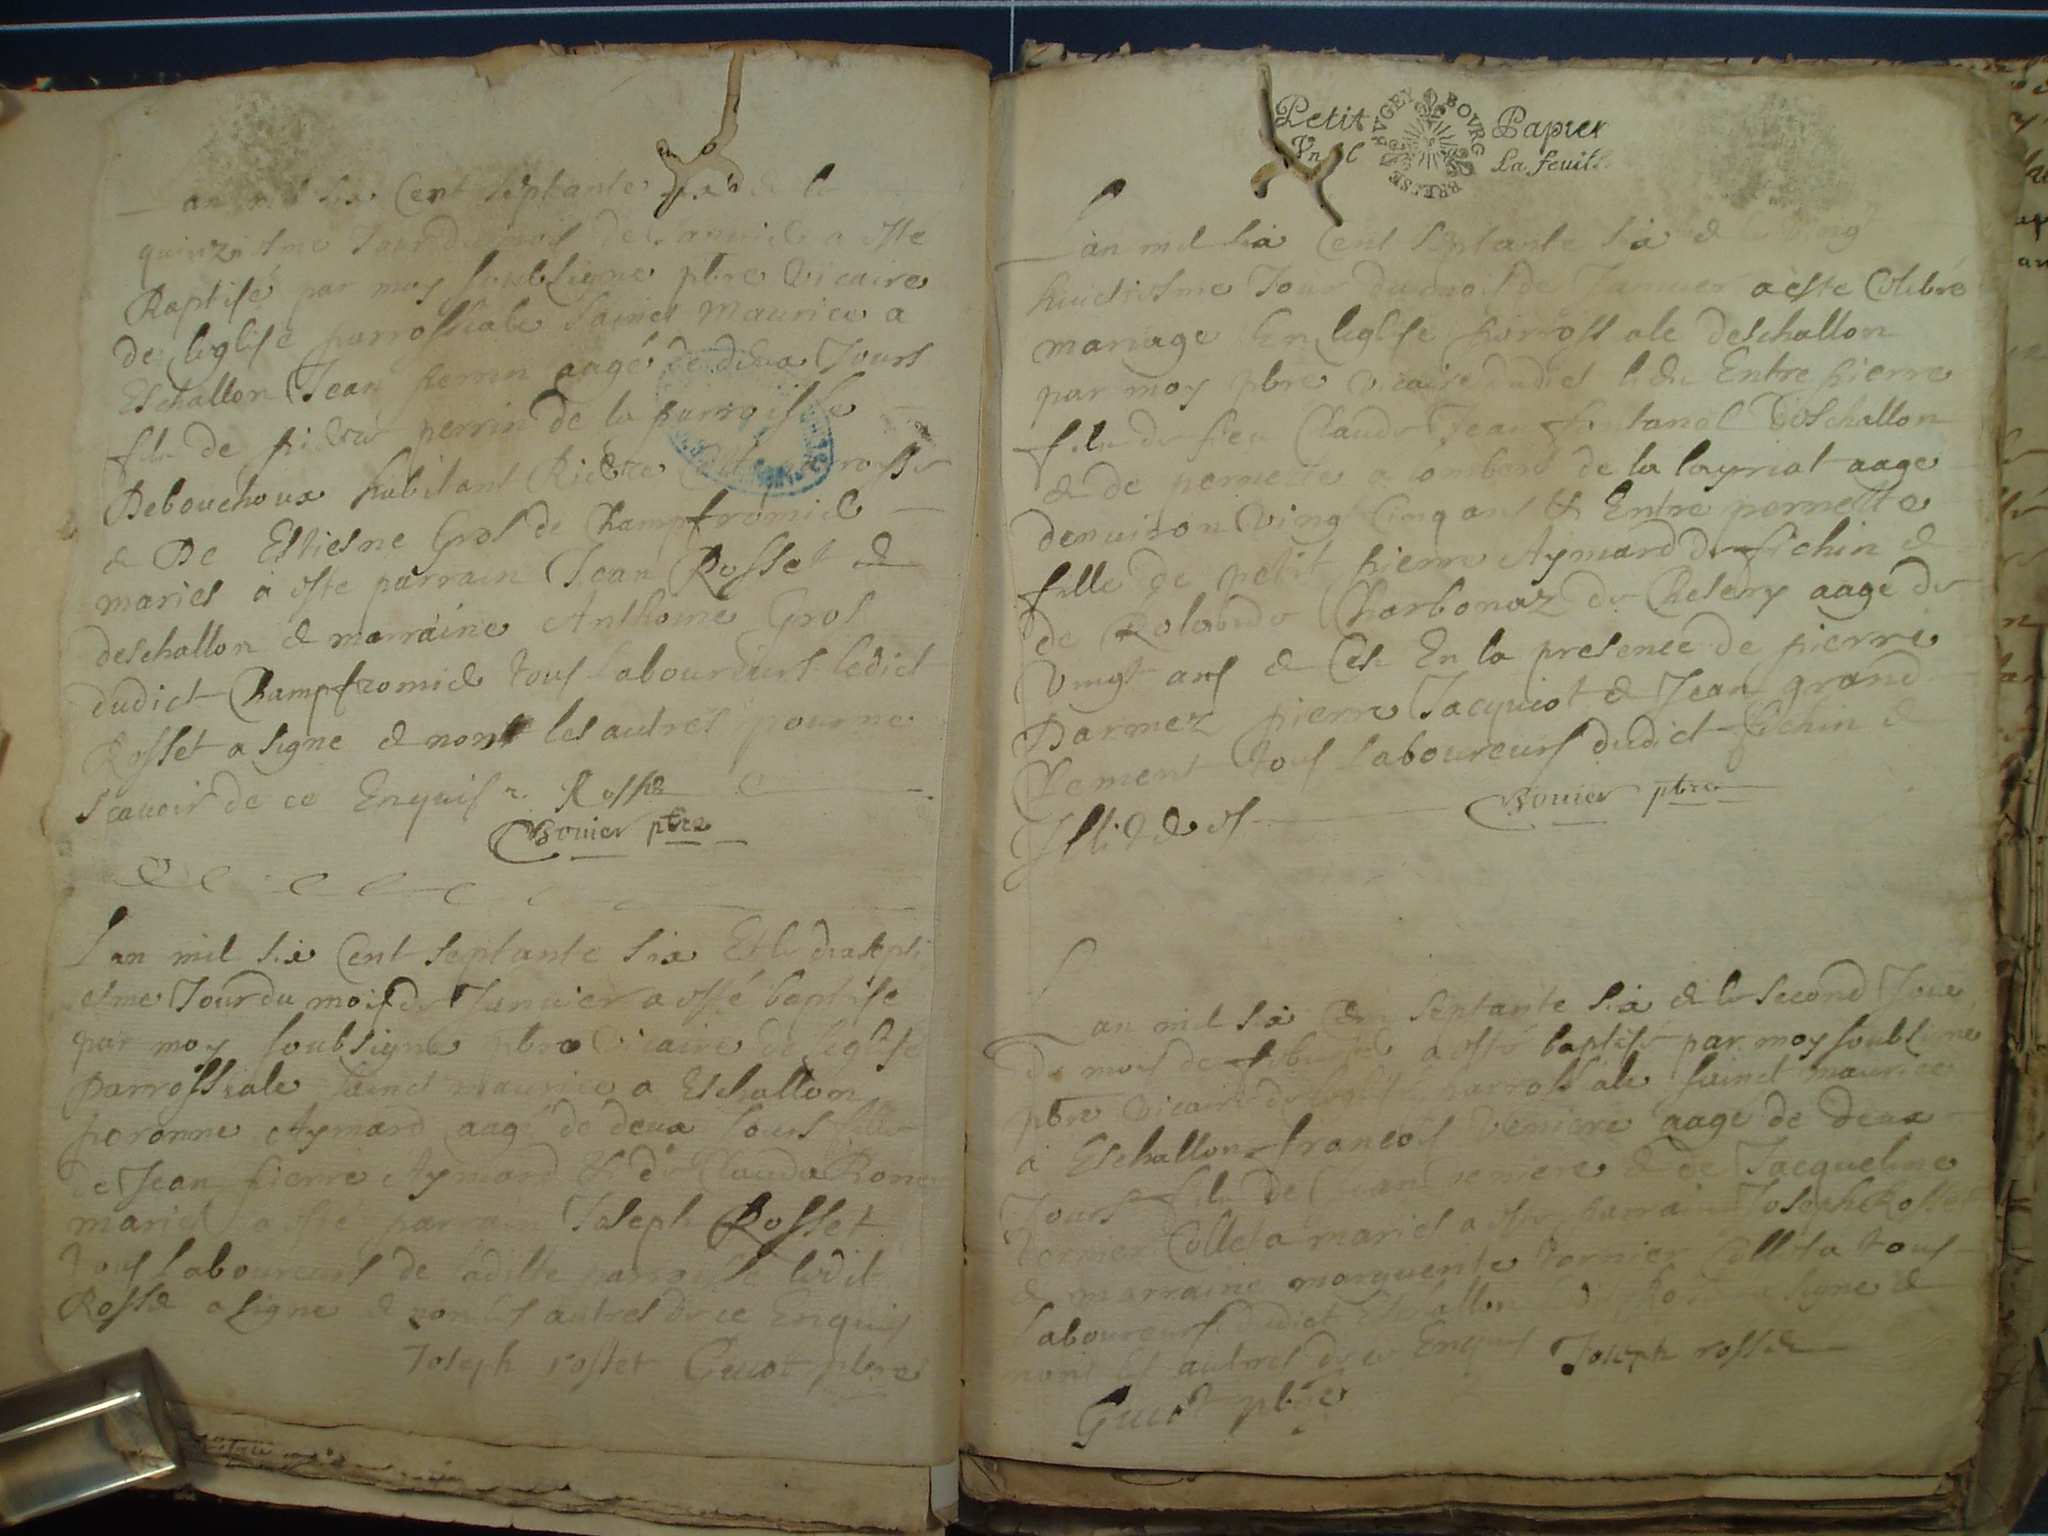 an mil six Cent septante six & le
quinziesme Jour du mois de Januier a este
Baptisé par moy soubsigne pbre vicaire
de leglise parrossiale sainct Maurice a
Eschallon Jean perrin aagé de deux Jours
filz de perrin de la parroisse
Debouchoux habitant Riere
& De Estiesne Gros de Champfromie
mariés a este parrain Jean Rosset &
deschallon & marraine Anthoine Gros
dudict Champfromie tous Laboureurs ledict
Rosset a signe & non les autres pour ne
scauoir de ce Enquis Rosset
Bouier pbre
Lan mil six Cent septante six Et le dixsepti
esme Jour du mois de Januier a esté baptise
par moy soubsigne pbre vicaire de leglise
parrossiale sainct maurice a Eschallon
peronne Aymard aagé de deux Jours fille
de Jean pierre Aymard & de Clauda
mariés a esté parrain Joseph Rosset
tous Laboureurs de laditte parroisse ledit
Rosset a signe & non les autres de ce Enquis
Joseph rosset Guiot pbre
Petit Papier
La feuille
BRESSE BVGEY BOVRG
Lan mil six Cent septante six & le vingt
huictiesme Jour du mois de Januier a este Celebré
mariage En leglise parrossiale deschallon
par moy pbre vicaire dudict lieu Entre pierre
filz de feu Claude Jean fontanel Deschallon
& de pernette de la layriat aage
denuiron Vingt Cinq ans & Entre pernette
fille de petit pierre Aymard de &
de Rolande Charbonaz de Chesery aage de
Vingt ans & Ce En la presence de pierre
Darmez pierre Jacquiot & Jean grand
Clement tous Laboureurs dudict &
Bouier pbre
Lan mil six Cent septante six & le second Jour
du mois de feburier a esté baptisé par moy soubsigne
pbre vicaire de leglise parrossiale sainct maurice
a Eschallon francois Veniere aagé de deux
Jours filz de Jean veniere & de Jacqueline
Tornier Colleta mariés a este parrain Joseph Rosset
& marraine marguerite tornier Colleta tous
Laboureurs dudict Eschallon ledit Rosset a signe &
non les autres de ce Enquis Joseph rosset
Guiot pbre